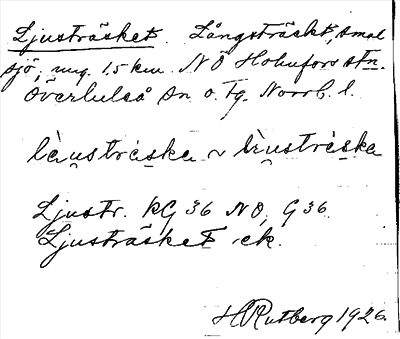 Ljusträsket. Långsträckt, smal
sjö, ung. 1.5 km. NÖ Holmfors stn.
Överluleå sn o. tg. Norrb. l.
Ljustr. KG 36 NO, G 36
Ljusträsket ek.
H Rutberg 1926.